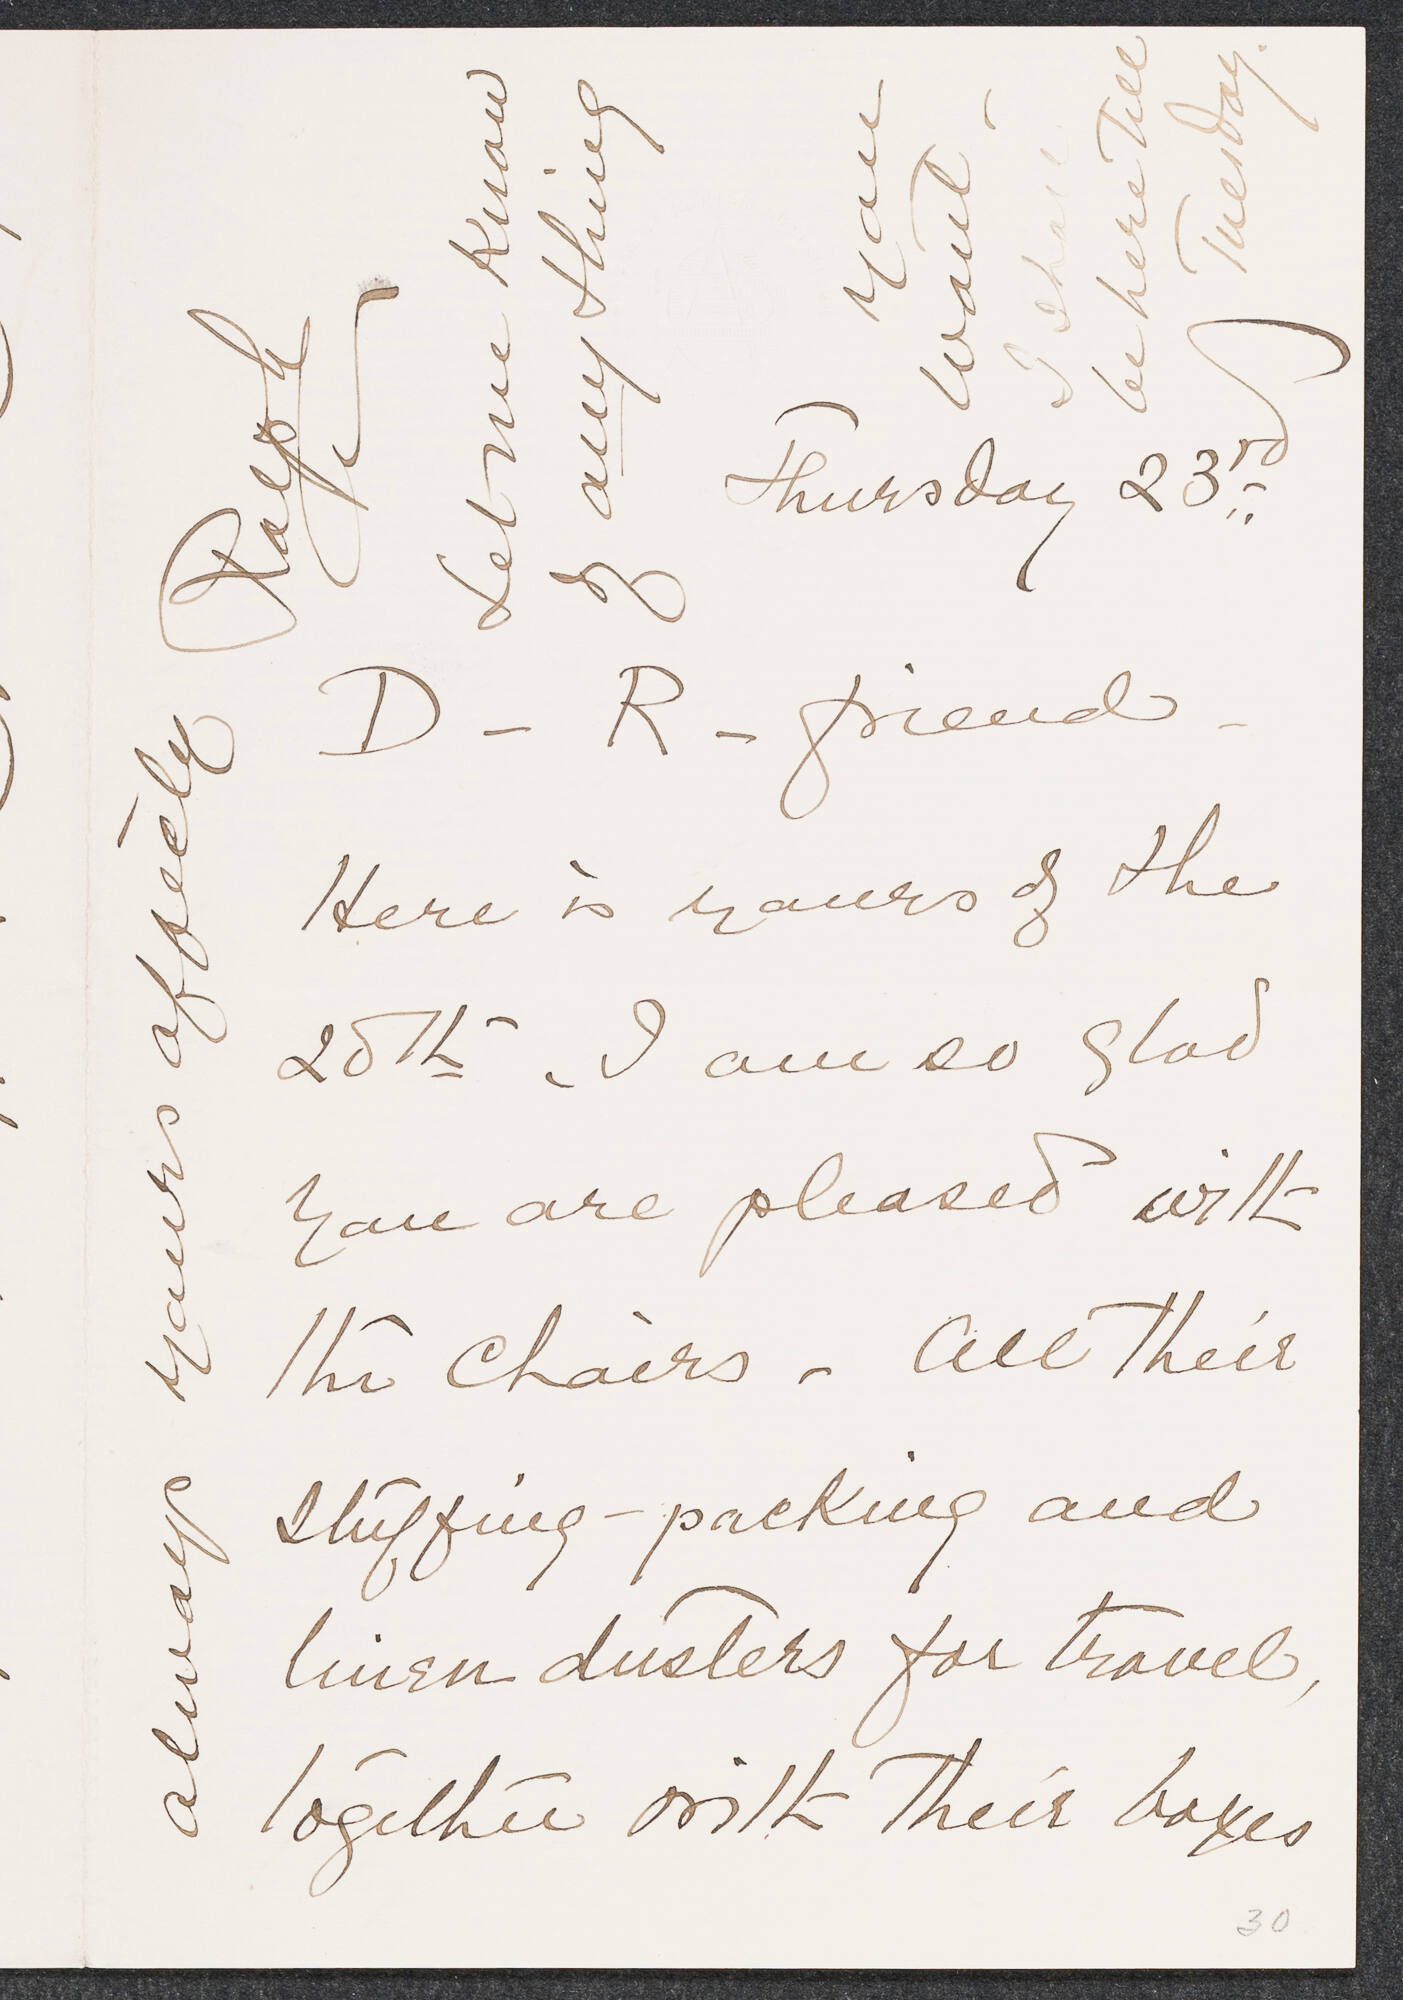 Thursday 23rd
D - R - friend -
Here is yours of the
20th - I am so glad
you are pleased with
the chairs - All their
stuffing-packing and
linen dusters for travel,
together with their boxes
always yours affecely
Ralph
Let me know
of any thing
you
want -
I shall
be here till
Tuesday.
30